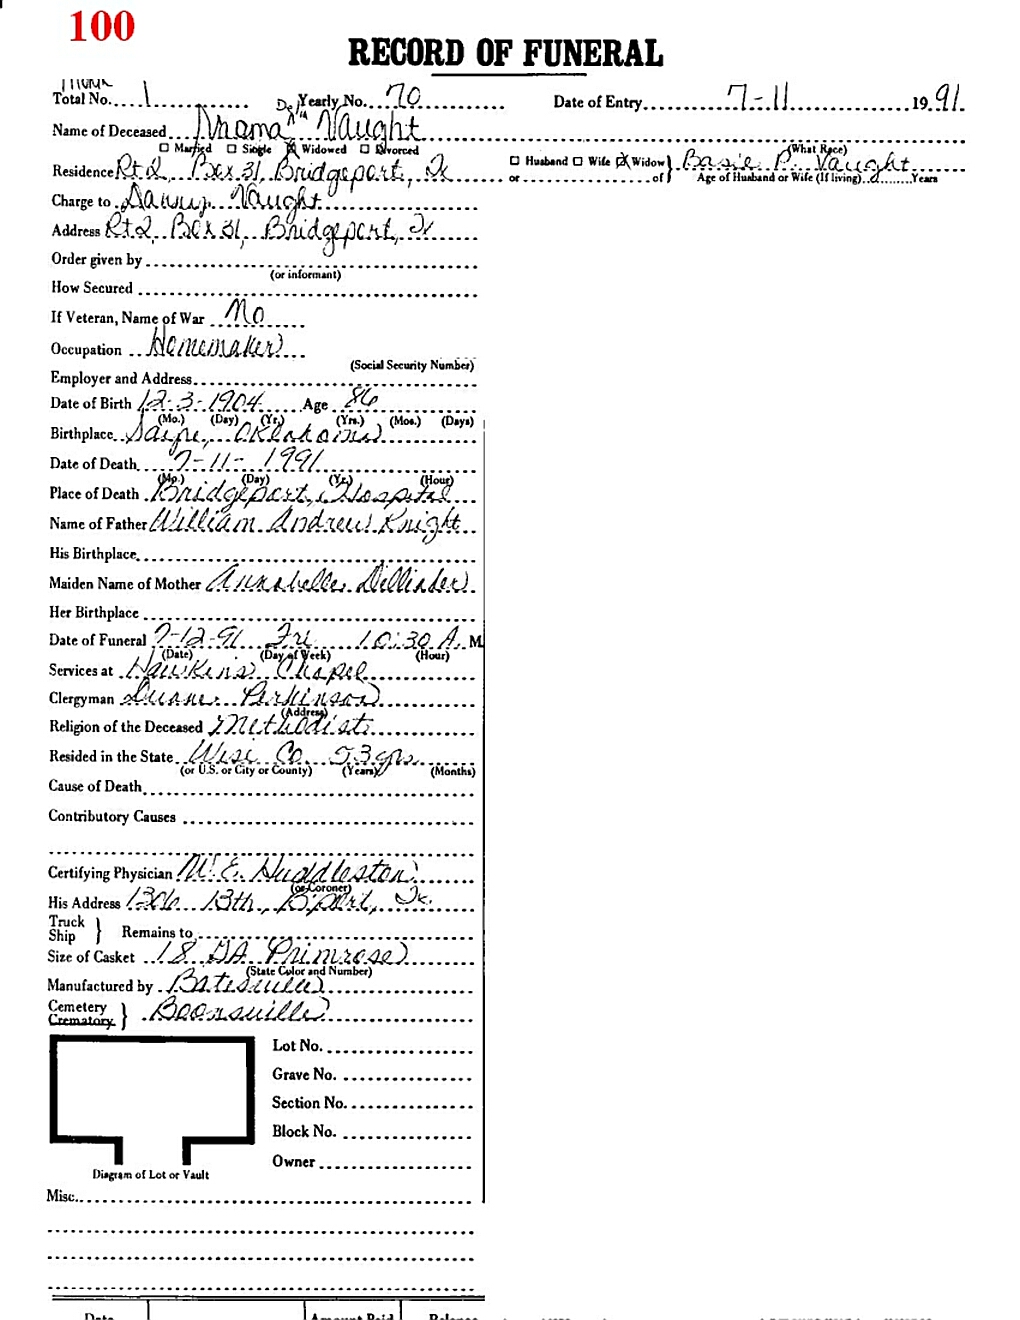 100
RECORD OF FUNERAL
Total No. 1 Yearly No. 70 Date of Entry 7-11 1991
Name of Deceased "Vaught (What Race)
☐ Married ☐ Single ☒ Widowed ☐ Divorced
Residence Rt 2, Box 31, Bridgeport, Tx ☐ Husband ☐ Wife ☒ Widow } Basie P. Vaught
or of Age of Husband or Wife (If living) Years
Charge to Danny Vaught
Address Rt 2, Box 31, Bridgeport, Tx
Order given by
(or informant)
How Secured
If Veteran, Name of War No
Occupation Homemaker
(Social Security Number)
Employer and Address
Date of Birth 12-3-1904 Age 86
(Mo.) (Day) (Yr.) (Yrs.) (Mos.) (Days)
Birthplace Oklahoma
Date of Death 7-11-1991
(Mo.) (Day) (Yr.) (Hour)
Place of Death Bridgeport, Hospital
Name of Father William Andrew Knight
His Birthplace
Maiden Name of Mother Annabelle
Her Birthplace
Date of Funeral 7-12-91 Fri 10:30 A. M
(Date) (Day of Week) (Hour)
Services at Hawkins Chapel
Clergyman Duane Perkinson
(Address)
Religion of the Deceased Methodist
Resided in the State Wise Co. 53 yrs
(or U.S. or City or County) (Years) (Months)
Cause of Death
Contributory Causes
Certifying Physician M. E. Huddleston
(or Coroner)
His Address 1306 13th, B'port, Tx.
Truck
Ship } Remains to
Size of Casket 18 GA Primrose
(State Color and Number)
Manufactured by Batesville
Cemetery
Crematory } Boonsville
Lot No.
Grave No.
Section No.
Block No.
Owner
Diagram of Lot or Vault
Misc.
Date Amount Paid Balance